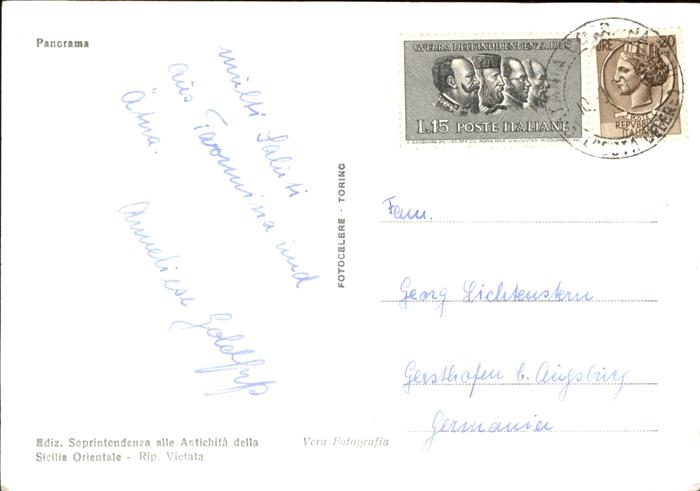 Panorama
multi Saluti
aus Taormina und
Ätna.
Anneliese
GVERRA DELL'INDIPENDENZA
L.15 POSTE ITALIANE
20
LIRE
POSTE
REPVBBLICA
ITALIANA
FOTOCELERE - TORINO
Fam.
Georg Lichtenstern
Gersthofen b. Augsburg
Germania
Ediz. Soprintendenza alle Antichità della
Sicilia Orientale - Rip. Vietata
Vera Fotografia